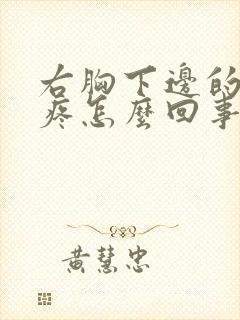 右胸下邊的
疼怎麼回事
黃慧忠